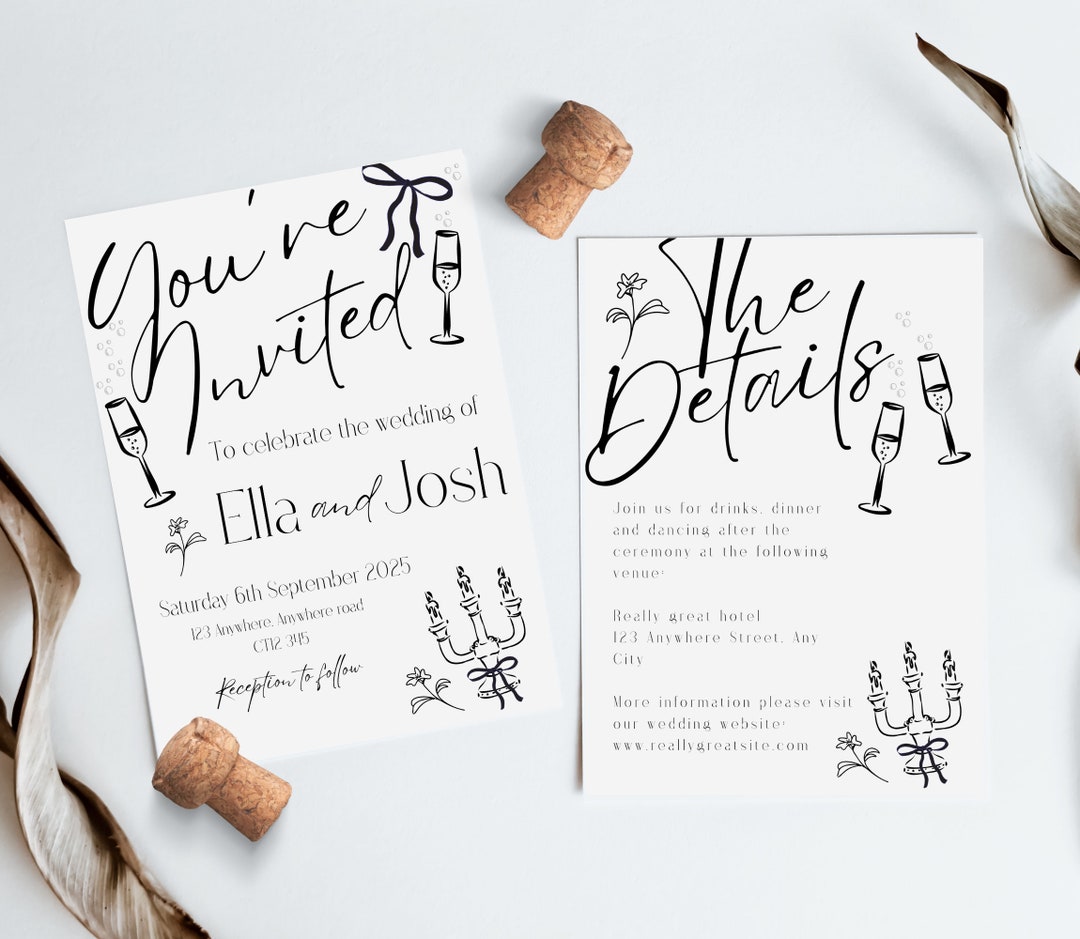 You're
Invited
To celebrate the wedding of
Ella and Josh
Saturday 6th September 2025
123 Anywhere, Anywhere road
CT12 345
Reception to follow
The
Details
Join us for drinks, dinner
and dancing after the
ceremony at the following
venue:
Really great hotel
123 Anywhere Street, Any
City
More information please visit
our wedding website:
www.reallygreatsite.com